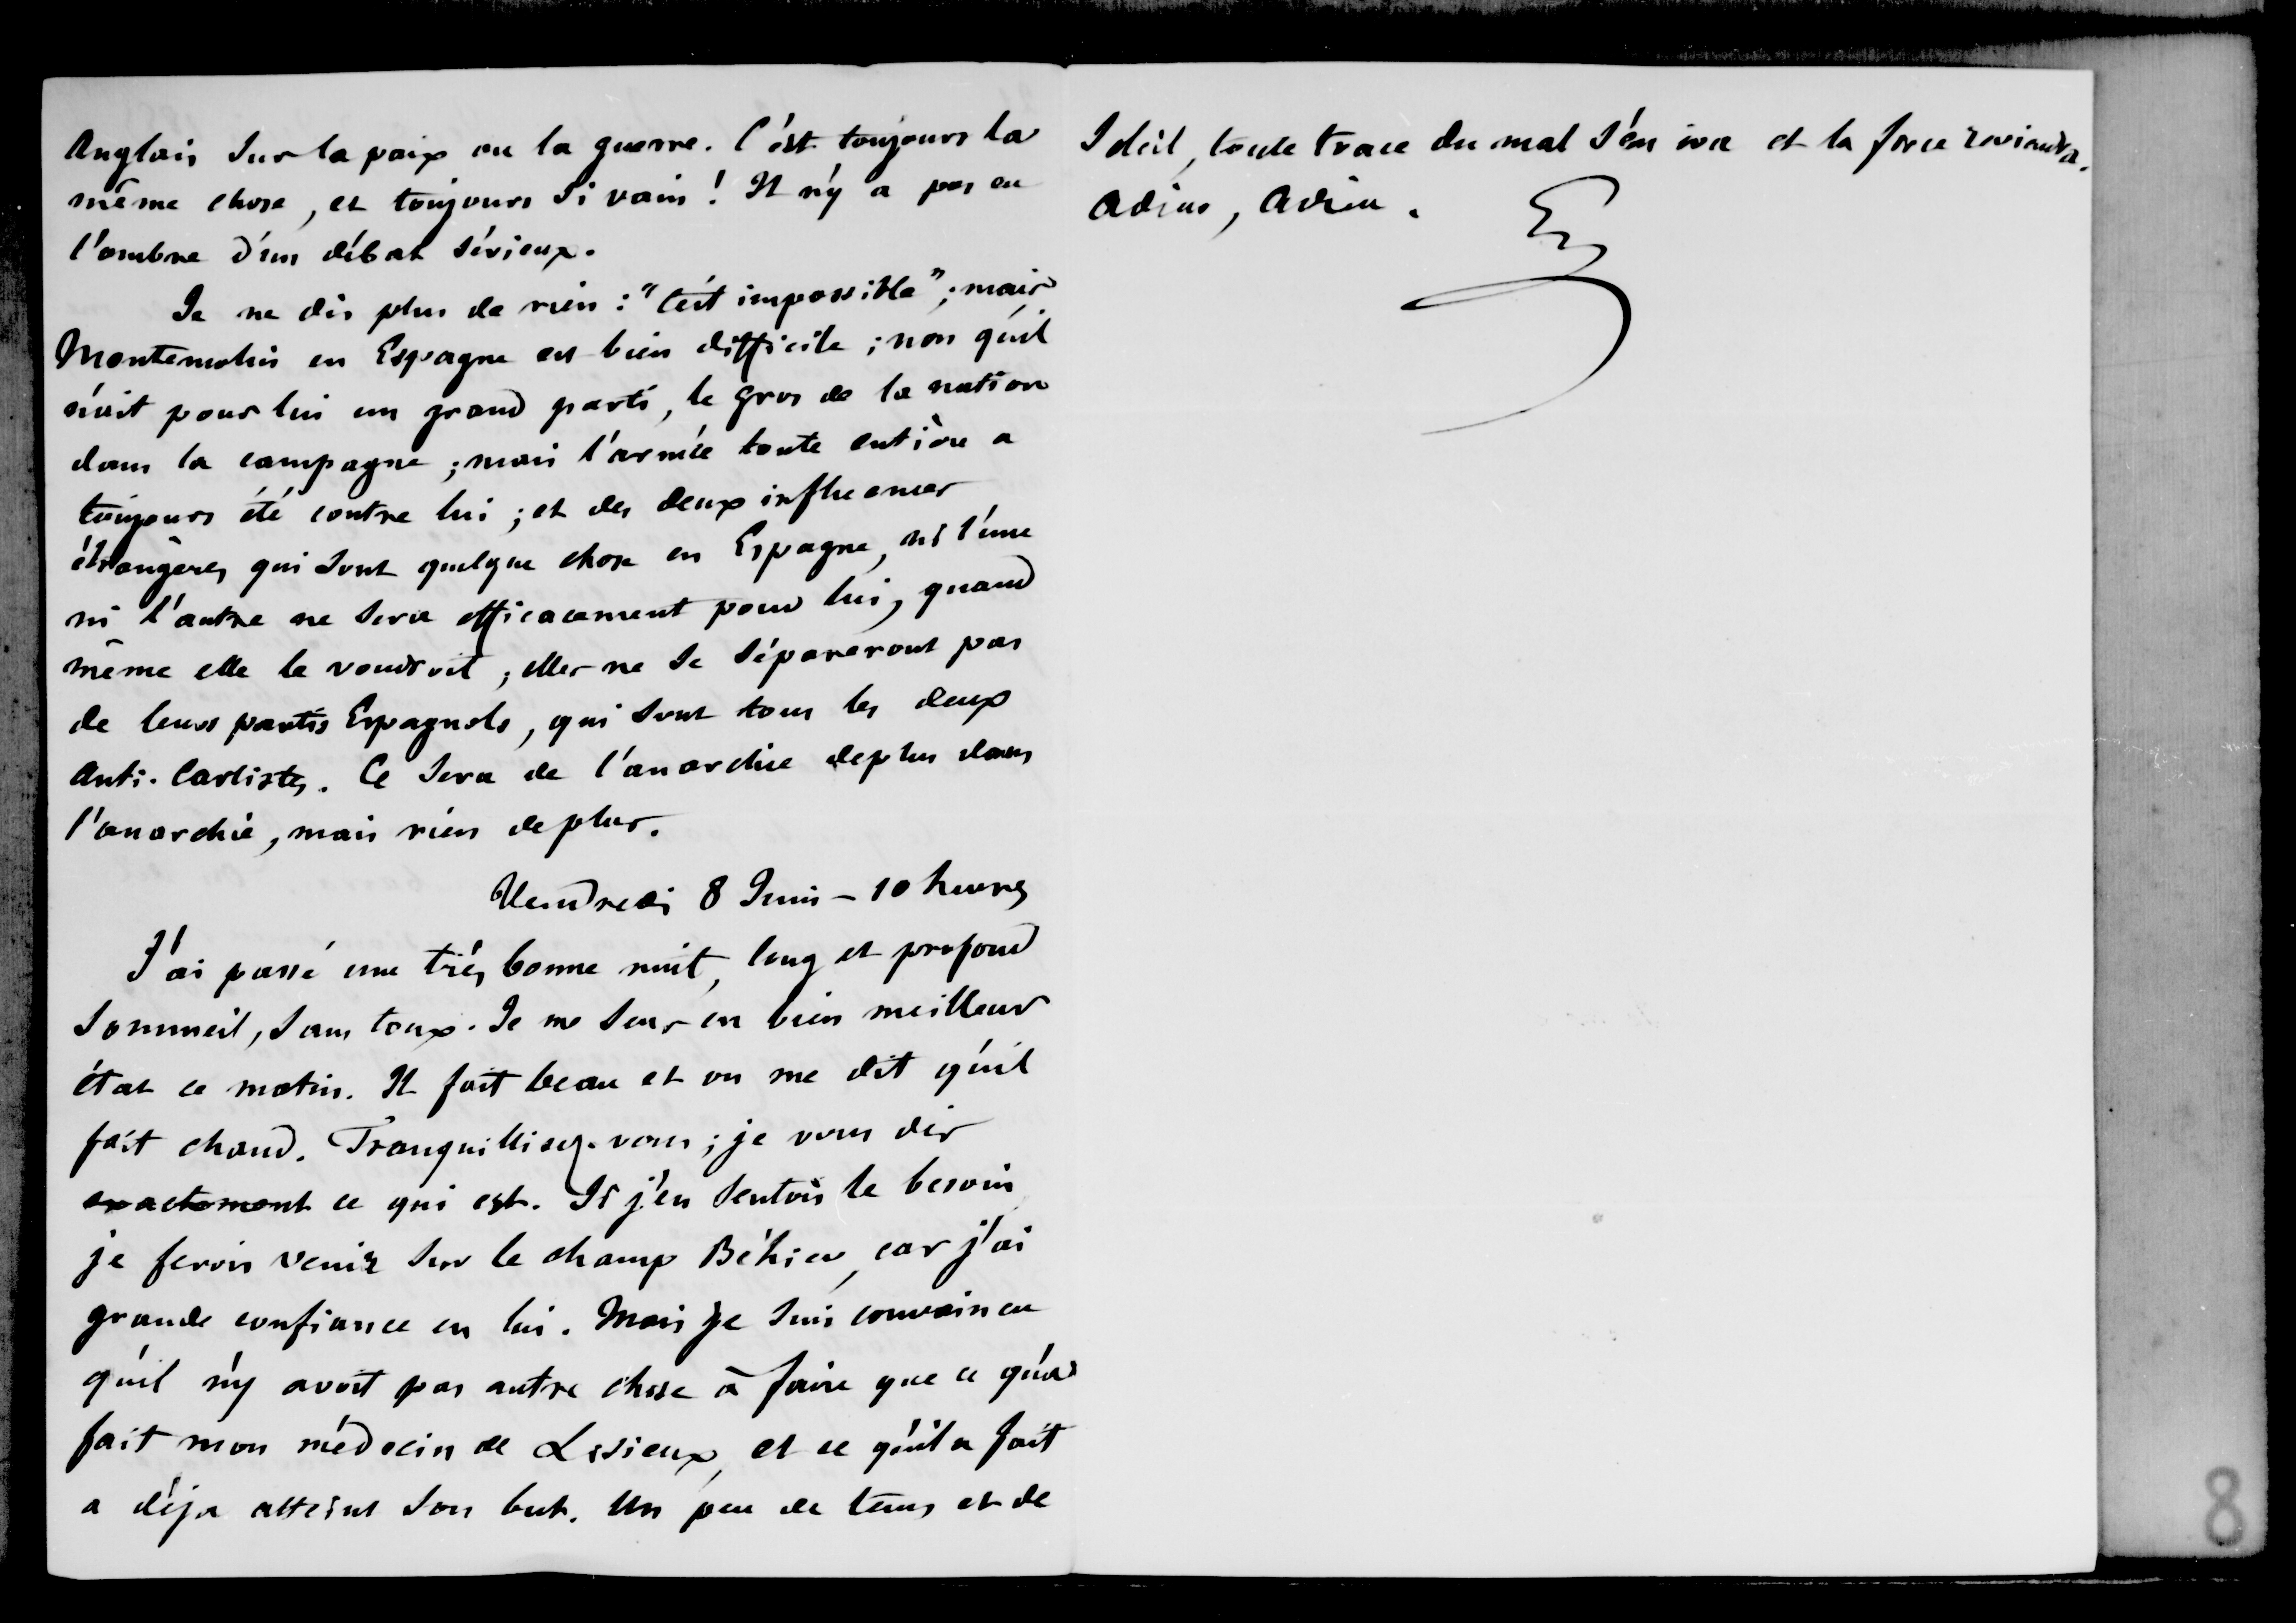 Anglais sur la paix ou la guerre. C'est toujours la
même chose, et toujours si vain ! Il n'y a pas eu
l'ombre d'un débat sérieux.
Je ne dis plus de rien : "C'est impossible" ; mais
Montemolin en Espagne est bien difficile ; non qu'il
n'ait pour lui un grand parti, le gros de la nation
dans la campagne ; mais l'armée toute entière a
toujours été contre lui ; et des deux influences
étrangères qui sont quelque chose en Espagne, ni l'une
ni l'autre ne sera efficacement pour lui, quand
même elle le voudroit ; elles ne se sépareront pas
de leurs partis Espagnols, qui sont tous les deux
anti-Carlistes. Ce sera de l'anarchie de plus dans
l'anarchie, mais rien de plus.
Vendredi 8 Juin - 10 heures
J'ai passé une très bonne nuit, long et profond
sommeil, sans toux. Je me sens en bien meilleur
état ce matin. Il fait beau et on me dit qu'il
fait chaud. Tranquillisez-vous ; je vous dis
exactement ce qui est. Si j'en sentois le besoin
je ferois venir sur le champ Béhier, car j'ai
grande confiance en lui. Mais je suis convaincu
qu'il n'y avoit pas autre chose à faire que ce qu'a
fait mon médecin de Lisieux, et ce qu'il a fait
a déja atteint son but. Un peu de tems et de
soleil, toute trace du mal s'en ira et la force reviendra.
Adieu, Adieu.